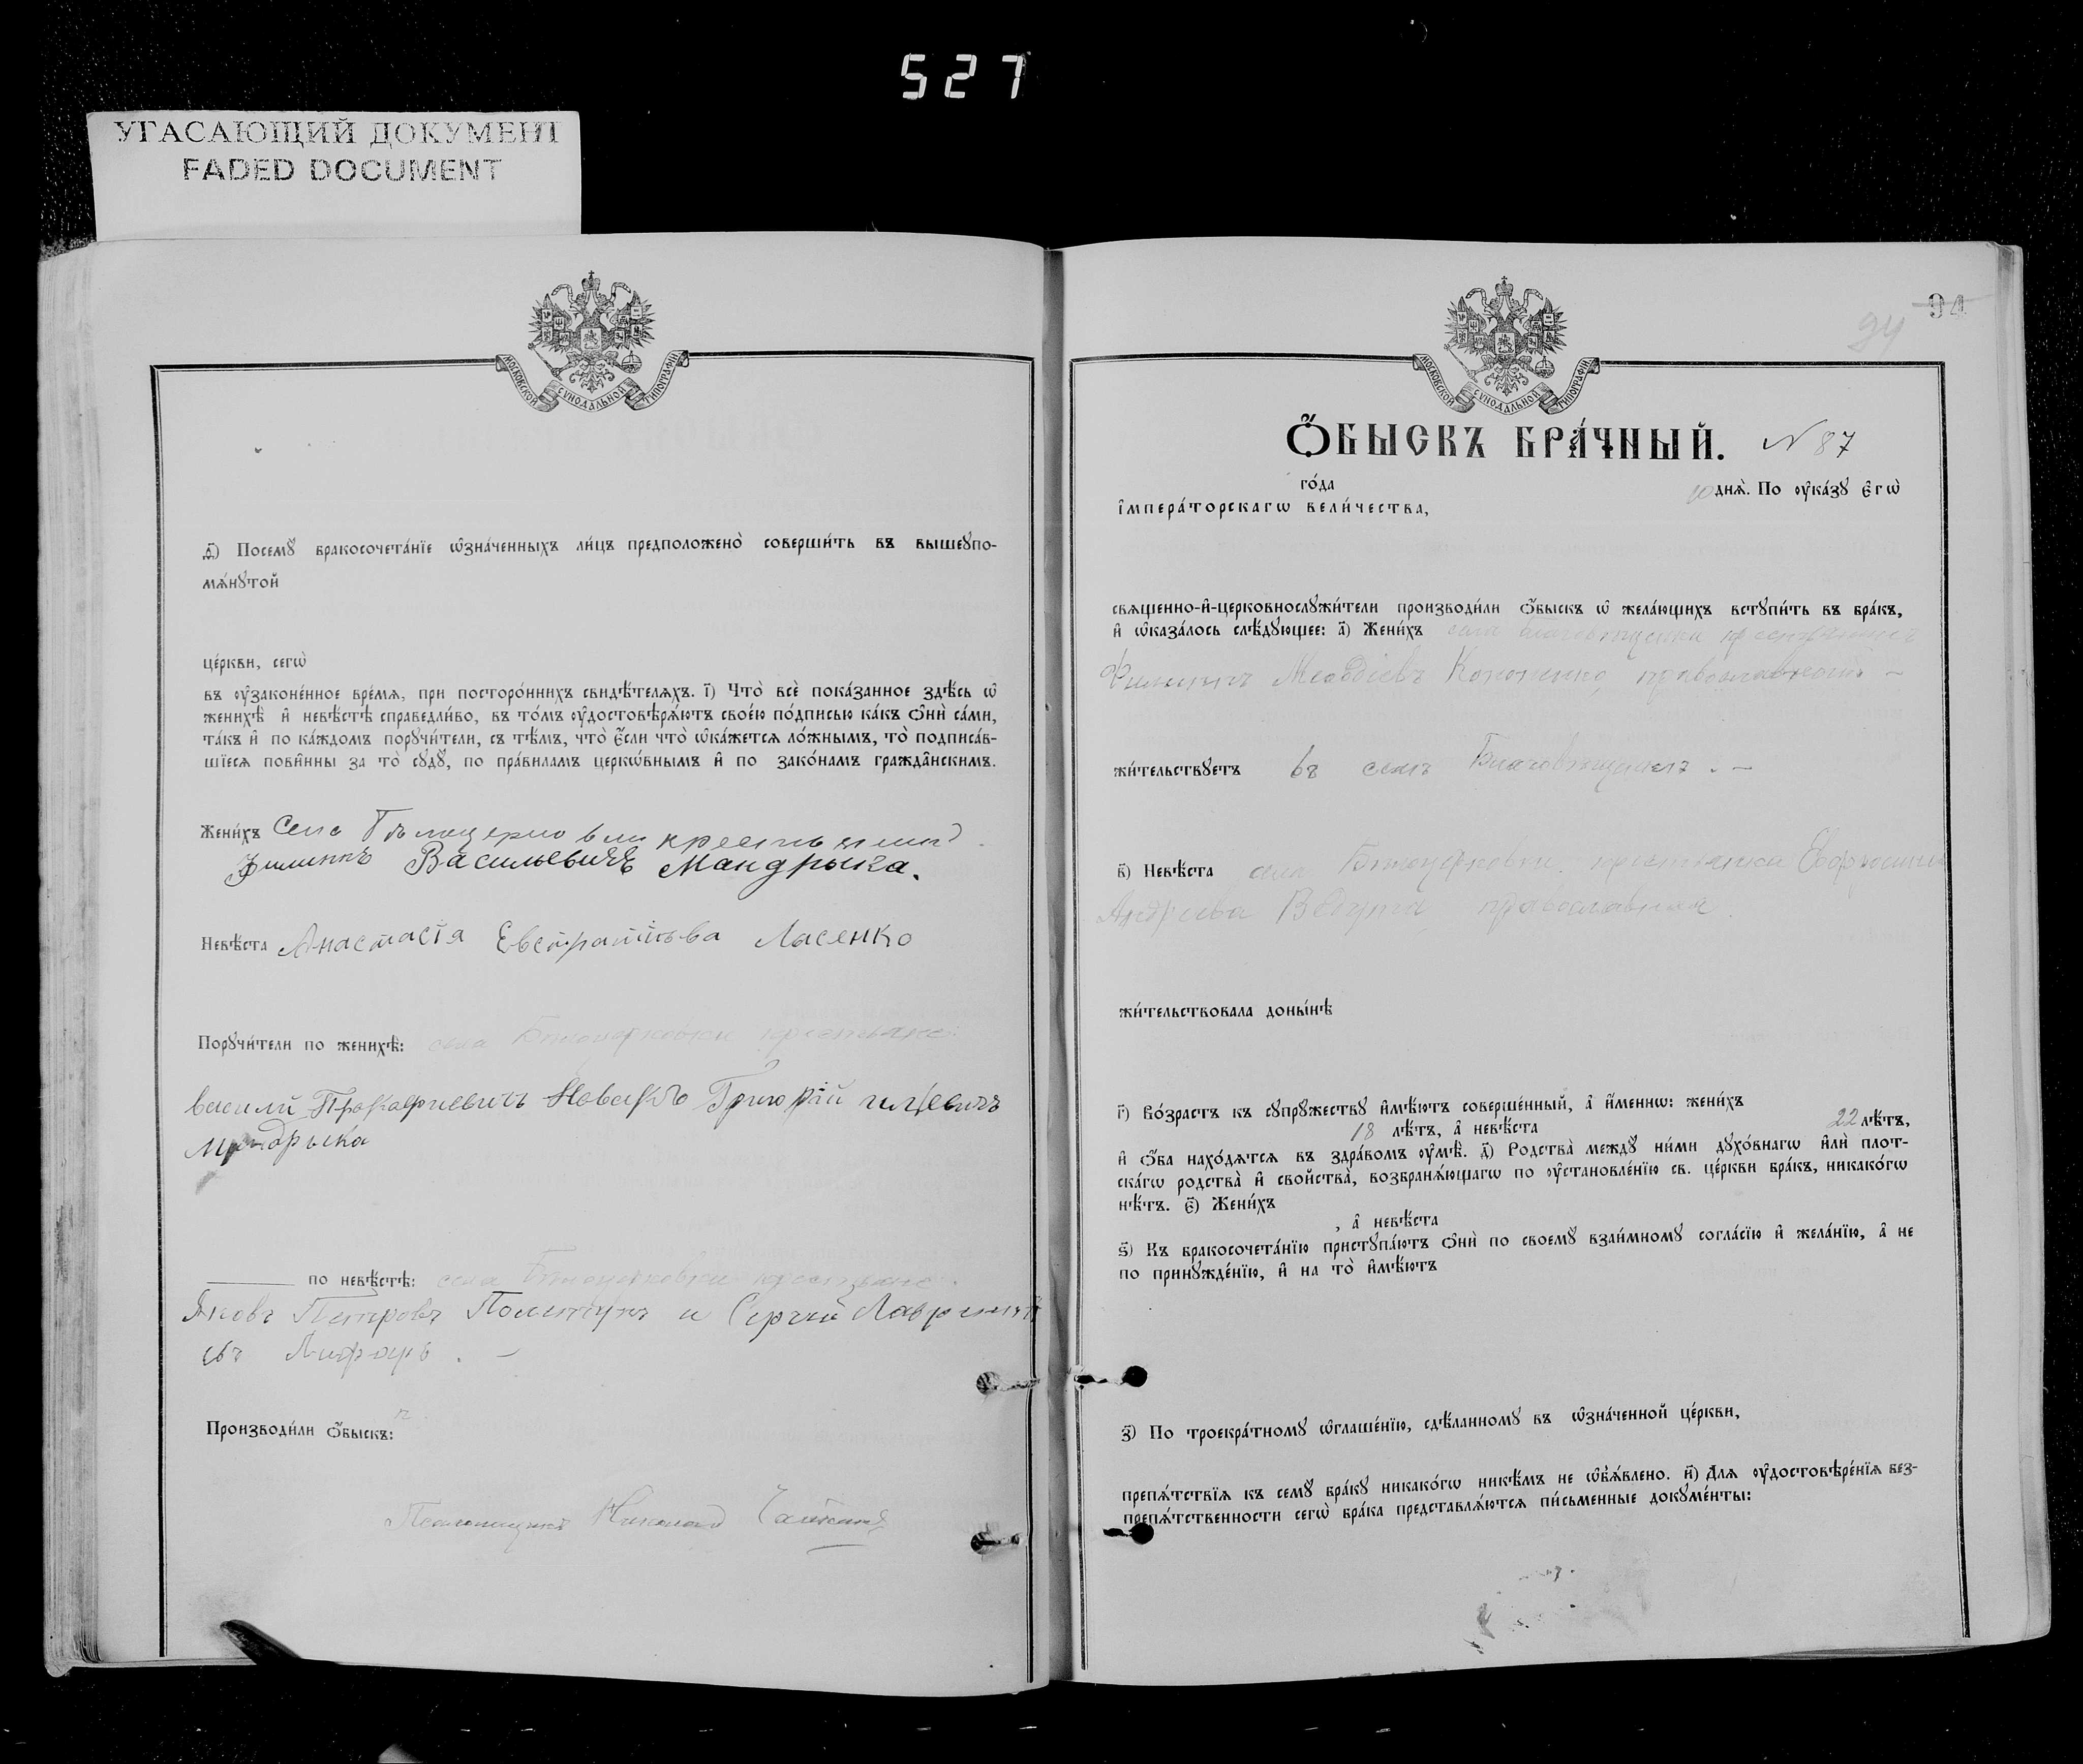 527
УГАСАЮЩИЙ ДОКУМЕНТ
FADED DOCUMENT
МОСКОВСКОЙ СУНОДАЛЬНОЙ ТИПОГРАФІИ
д҃) Посемꙋ̀ бракосочета́нїе ѡ҆зна́ченныхъ ли́цъ предположено̀ соверши́ть въ вышеꙋпо-
мѧ́нꙋтой
це́ркви, сегѡ̀
въ ᲂу҆зако́ненное вре́мѧ, при посторо́ннихъ свидѣ́телѧхъ. і҃) Что̀ всѐ пока́занное здѣ́сь ѡ҆
женихѣ̀ и҆ невѣ́стѣ справедли́во, въ то́мъ ᲂу҆достовѣрѧ́ютъ свое́ю по́дписью ка́къ ѻ҆нѝ са́ми,
та́къ и҆ по ка́ждомъ порꙋчи́тели, съ тѣ́мъ, что̀ є҆́сли что̀ ѡ҆ка́жетсѧ ло́жнымъ, то̀ подписа́в-
шїесѧ пови́нны за то̀ сꙋдꙋ̀, по пра́виламъ церкѡ́внымъ и҆ по зако́намъ гражда̑нскимъ.
Жени́хъ Села
Филиппъ Васильевичъ Мандрыка.
Невѣ́ста Анастасія Евстратіева Ласенко
Порꙋчи́тели по женихѣ̀: села крестьяне
василій Новакъ Григорій
Мандрыка
по невѣ́стѣ: села крестьяне
Яковъ Петровъ и Сергій
Производи́ли ѻ҆́быскъ:
Псаломщикъ Николай
94
94
МОСКОВСКОЙ СУНОДАЛЬНОЙ ТИПОГРАФІИ
Ѻ҆́БЫСКЪ БРА́ЧНЫЙ. N 87
го́да 10 днѧ̀. По ᲂу҆ка́зꙋ є҆гѡ̀
і҆мпера́торскагѡ вели́чества,
свѧщенно-и҆-церковнослꙋжи́тели производи́ли ѻ҆́быскъ ѡ҆ жела́ющихъ встꙋпи́ть въ бра́къ,
и҆ ѡ҆каза́лось слѣ́дꙋющее: а҃) Жени́хъ села
Филиппъ Кононенко, православный –
жи́тельствꙋетъ въ селѣ . –
в҃) Невѣ́ста села крестьянка
Андреева православная
жи́тельствовала доны́нѣ
г҃) Во́зрастъ къ сꙋпрꙋ́жествꙋ и҆мѣ́ютъ соверше́нный, а҆ и҆́меннѡ: жени́хъ
18 лѣ́тъ, а҆ невѣ́ста 22 лѣ́тъ,
и҆ ѻ҆́ба нахо́дѧтсѧ въ здра́вомъ ᲂу҆мѣ̀. д҃) Родства̀ междꙋ̀ ни́ми дꙋхо́внагѡ и҆лѝ плот-
ска́гѡ родства̀ и҆ свойства̀, возбранѧ́ющагѡ по ᲂу҆становле́нїю св. це́ркви бра́къ, никако́гѡ
нѣ́тъ. є҃) Жени́хъ
, а҆ невѣ́ста
ѕ҃) Къ бракосочета́нїю пристꙋпа́ютъ ѻ҆нѝ по своемꙋ̀ взаи́мномꙋ согла́сїю и҆ жела́нїю, а҆ не
по принꙋжде́нїю, и҆ на то̀ и҆мѣ́ютъ
з҃) По троекра́тномꙋ ѡ҆глаше́нїю, сдѣ́ланномꙋ въ ѡ҆зна́ченной це́ркви,
препѧ́тствїѧ къ семꙋ̀ бра́кꙋ никако́гѡ никѣ́мъ не ѡ҆б̾ѧ́влено. и҃) Длѧ ᲂу҆достовѣре́нїѧ без-
препѧ́тственности сегѡ̀ бра́ка представлѧ́ютсѧ пи́сьменные докꙋме́нты: